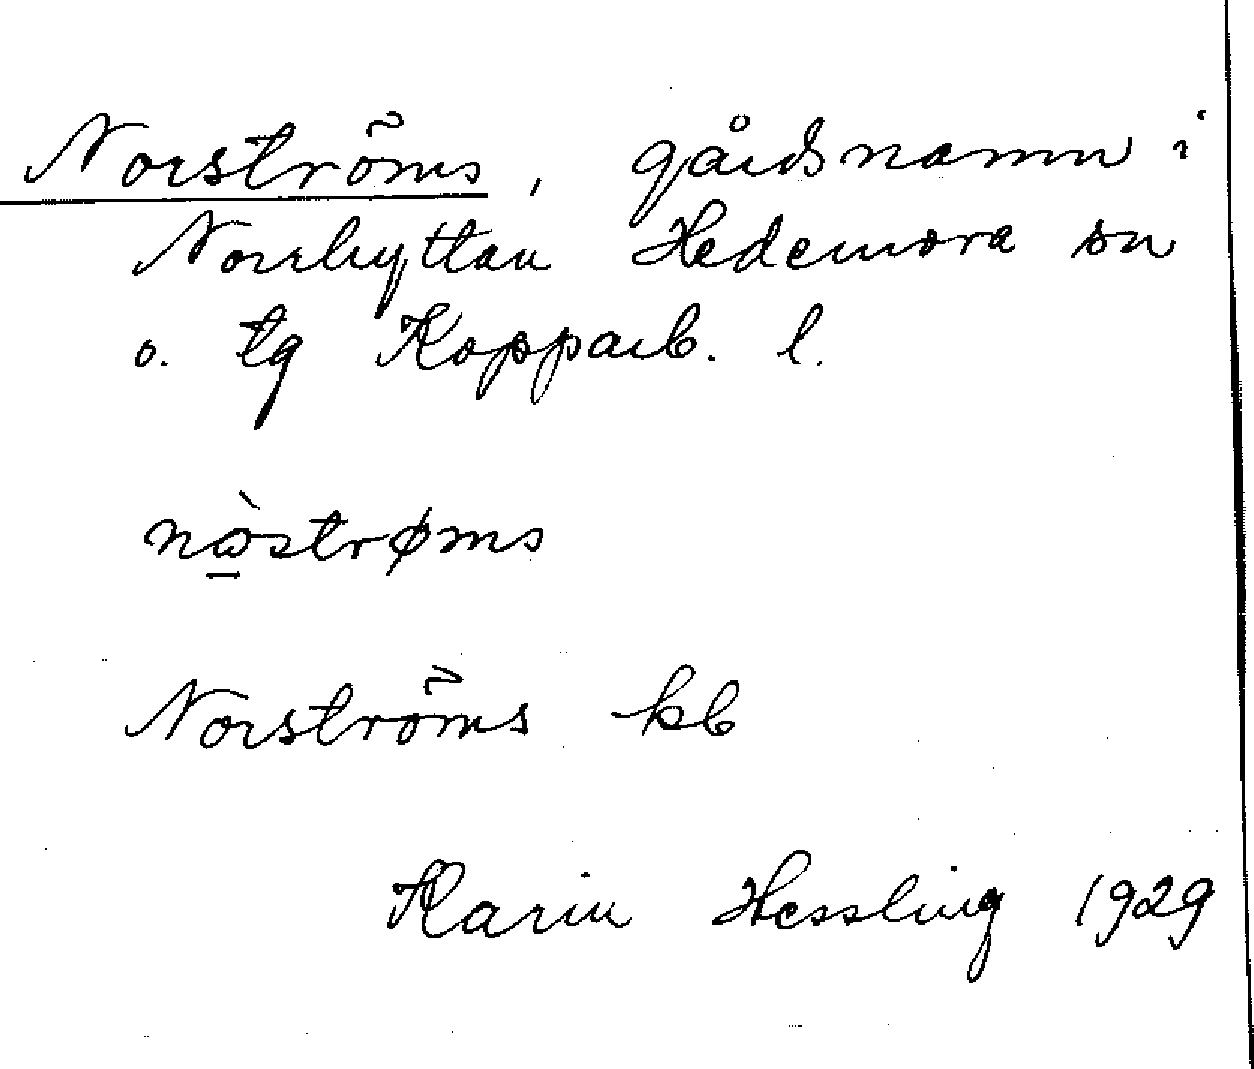 Norströms, gårdsnamn i
Norrhyttan Hedemora sn
o. tg Kopparb. l.
nὼ̠strøms
Norströms kb
Karin Hessling 1929